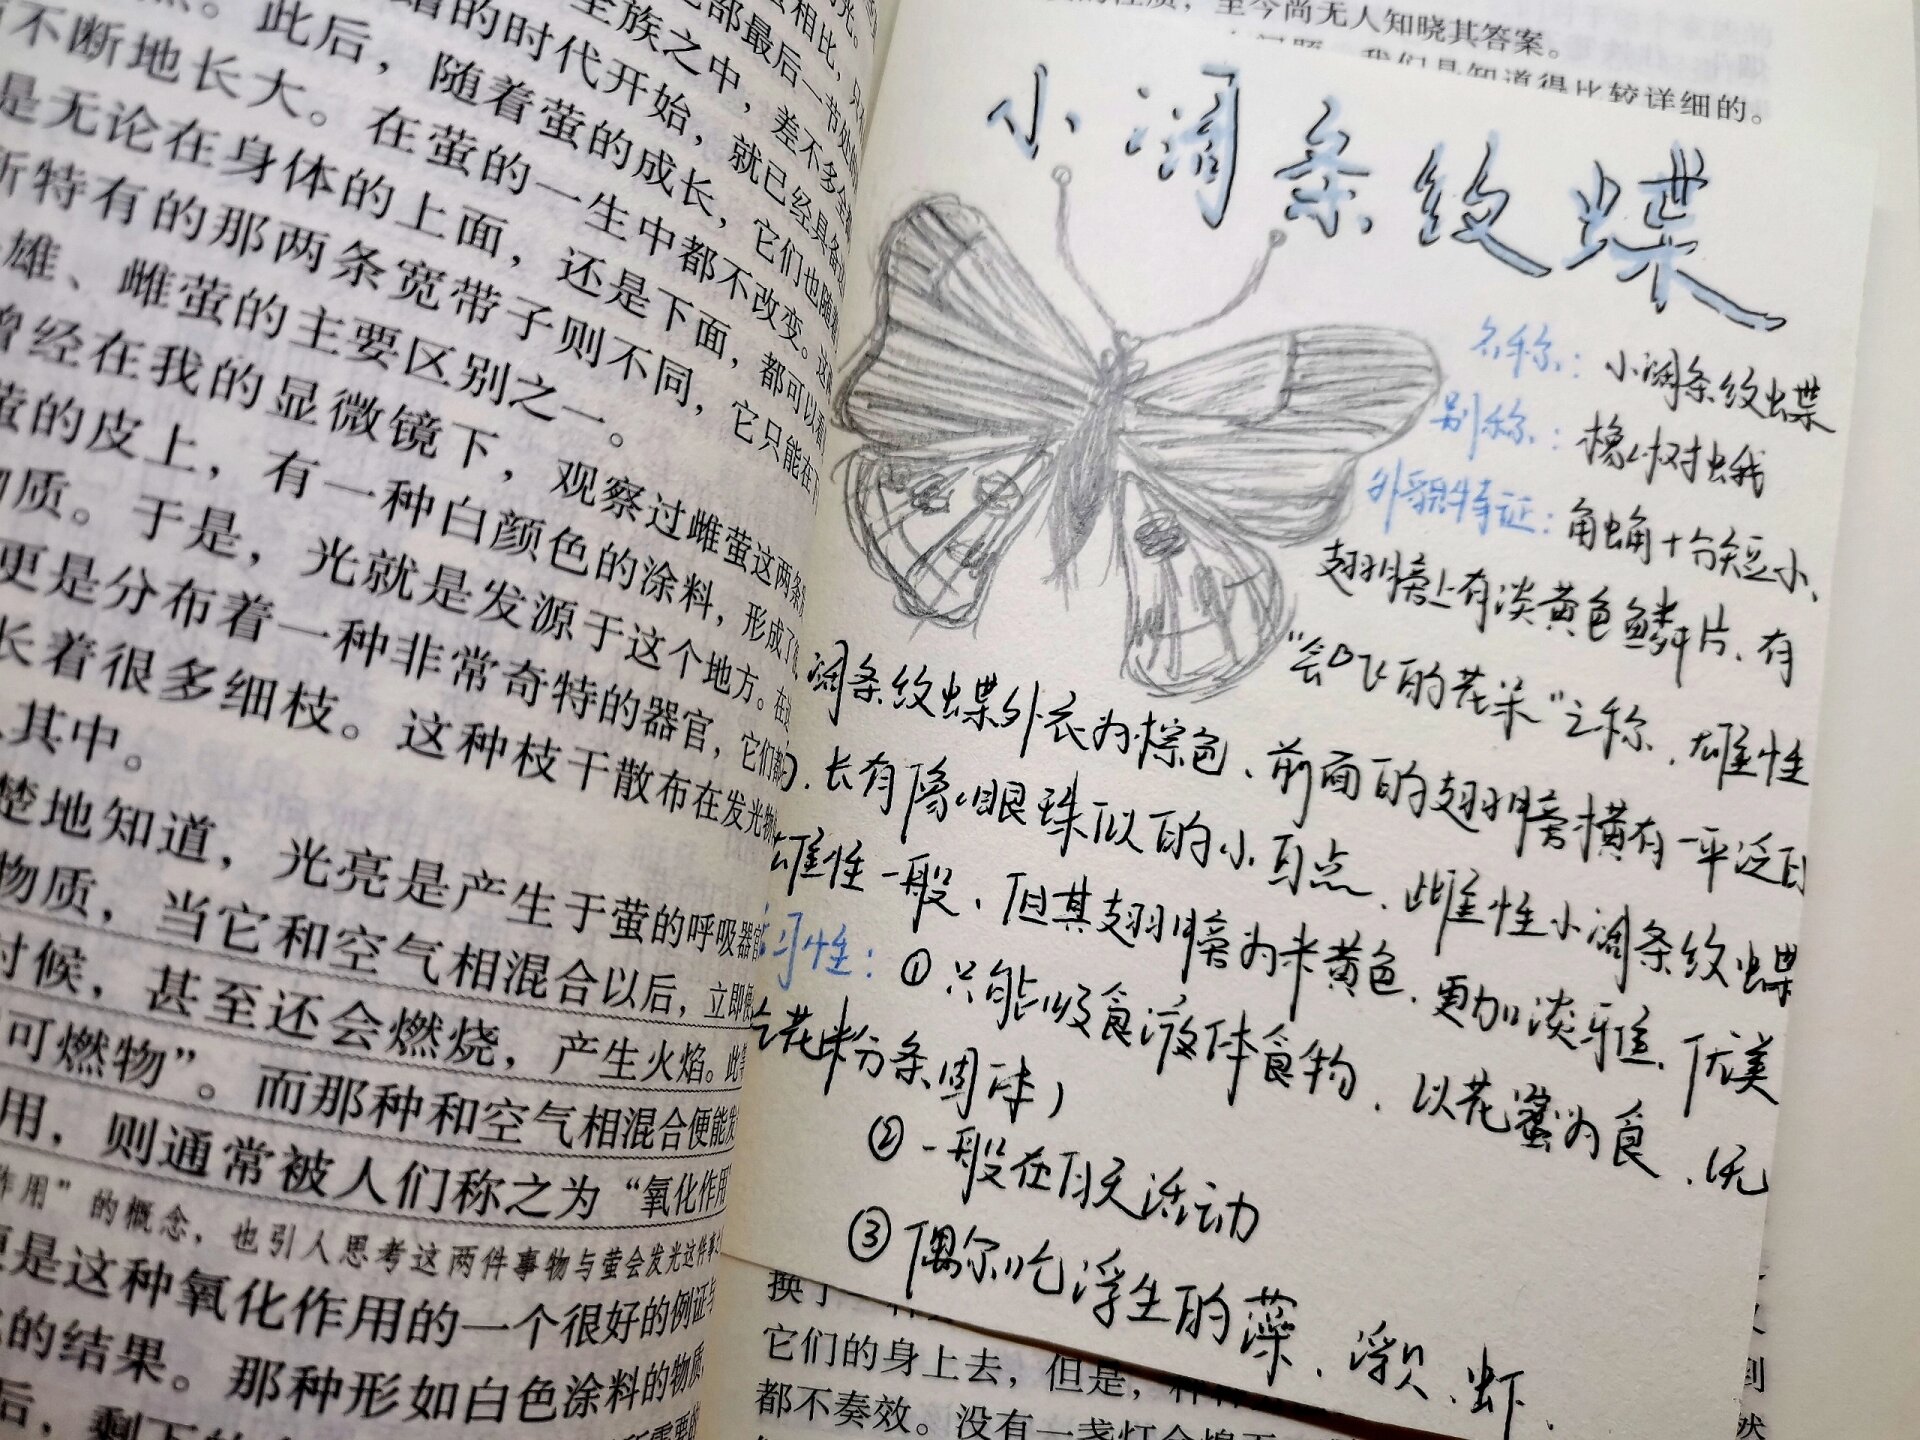 相比，只
部最后一节处
全族之中，差不多全
的时代开始，就已经具备
此后，随着萤的成长，它们也随着
不断地长大。在萤的一生中都不改变。
是无论在身体的上面，还是下面，都可以看
所特有的那两条宽带子则不同，它只能在
雄、雌萤的主要区别之一。
曾经在我的显微镜下，观察过雌萤这两条
萤的皮上，有一种白颜色的涂料，形成了
物质。于是，光就是发源于这个地方。在
更是分布着一种非常奇特的器官，它们都
长着很多细枝。这种枝干散布在发光物
其中。
楚地知道，光亮是产生于萤的呼吸器官
物质，当它和空气相混合以后，立即便
时候，甚至还会燃烧，产生火焰。此
可燃物”。而那种和空气相混合便能发
用，则通常被人们称之为“氧化作用
作用”的概念，也引人思考这两件事物与萤会发光这件事
是这种氧化作用的一个很好的例证与
的结果。那种形如白色涂料的物质
后，剩下的
的性质，至今尚无人知晓其答案。
我们是知道得比较详细的。
小阔条纹蝶
名称：小阔条纹蝶
别称：橡树蛾
外貌特征：角蝻十分短小、
翅膀上有淡黄色鳞片、有
“会飞的花朵”之称、雄性
阔条纹蝶外衣为棕色、前面的翅膀横有一平泛白
长有像眼珠似的小白点、雌性小阔条纹蝶
雄性一般、但其翅膀为米黄色、更加淡雅、优美
习性：①只能吸食液体食物、以花蜜为食、无
花粉条固体）
②一般在白天活动
③偶尔吃浮生的藻、浮贝、虾、
换了
它们的身上去，但是，
都不奏效。没有一盏灯会熄